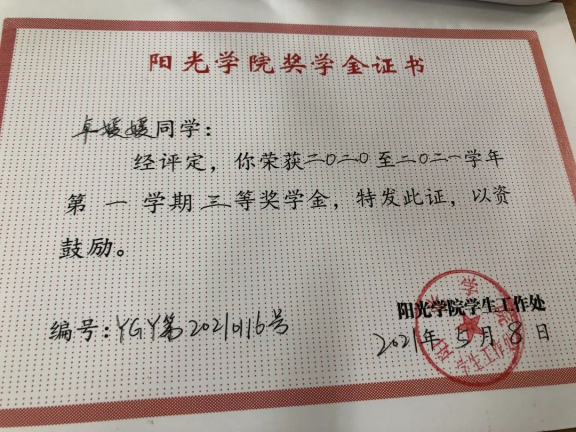 阳光学院奖学金证书
卓媛媛同学:
经评定，你荣获二〇二〇至二〇二一学年
第 一 学期 三 等奖学金，特发此证，以资
鼓励。
阳光学院学生工作处
编号:YGY第20210116号
2021年5月8日